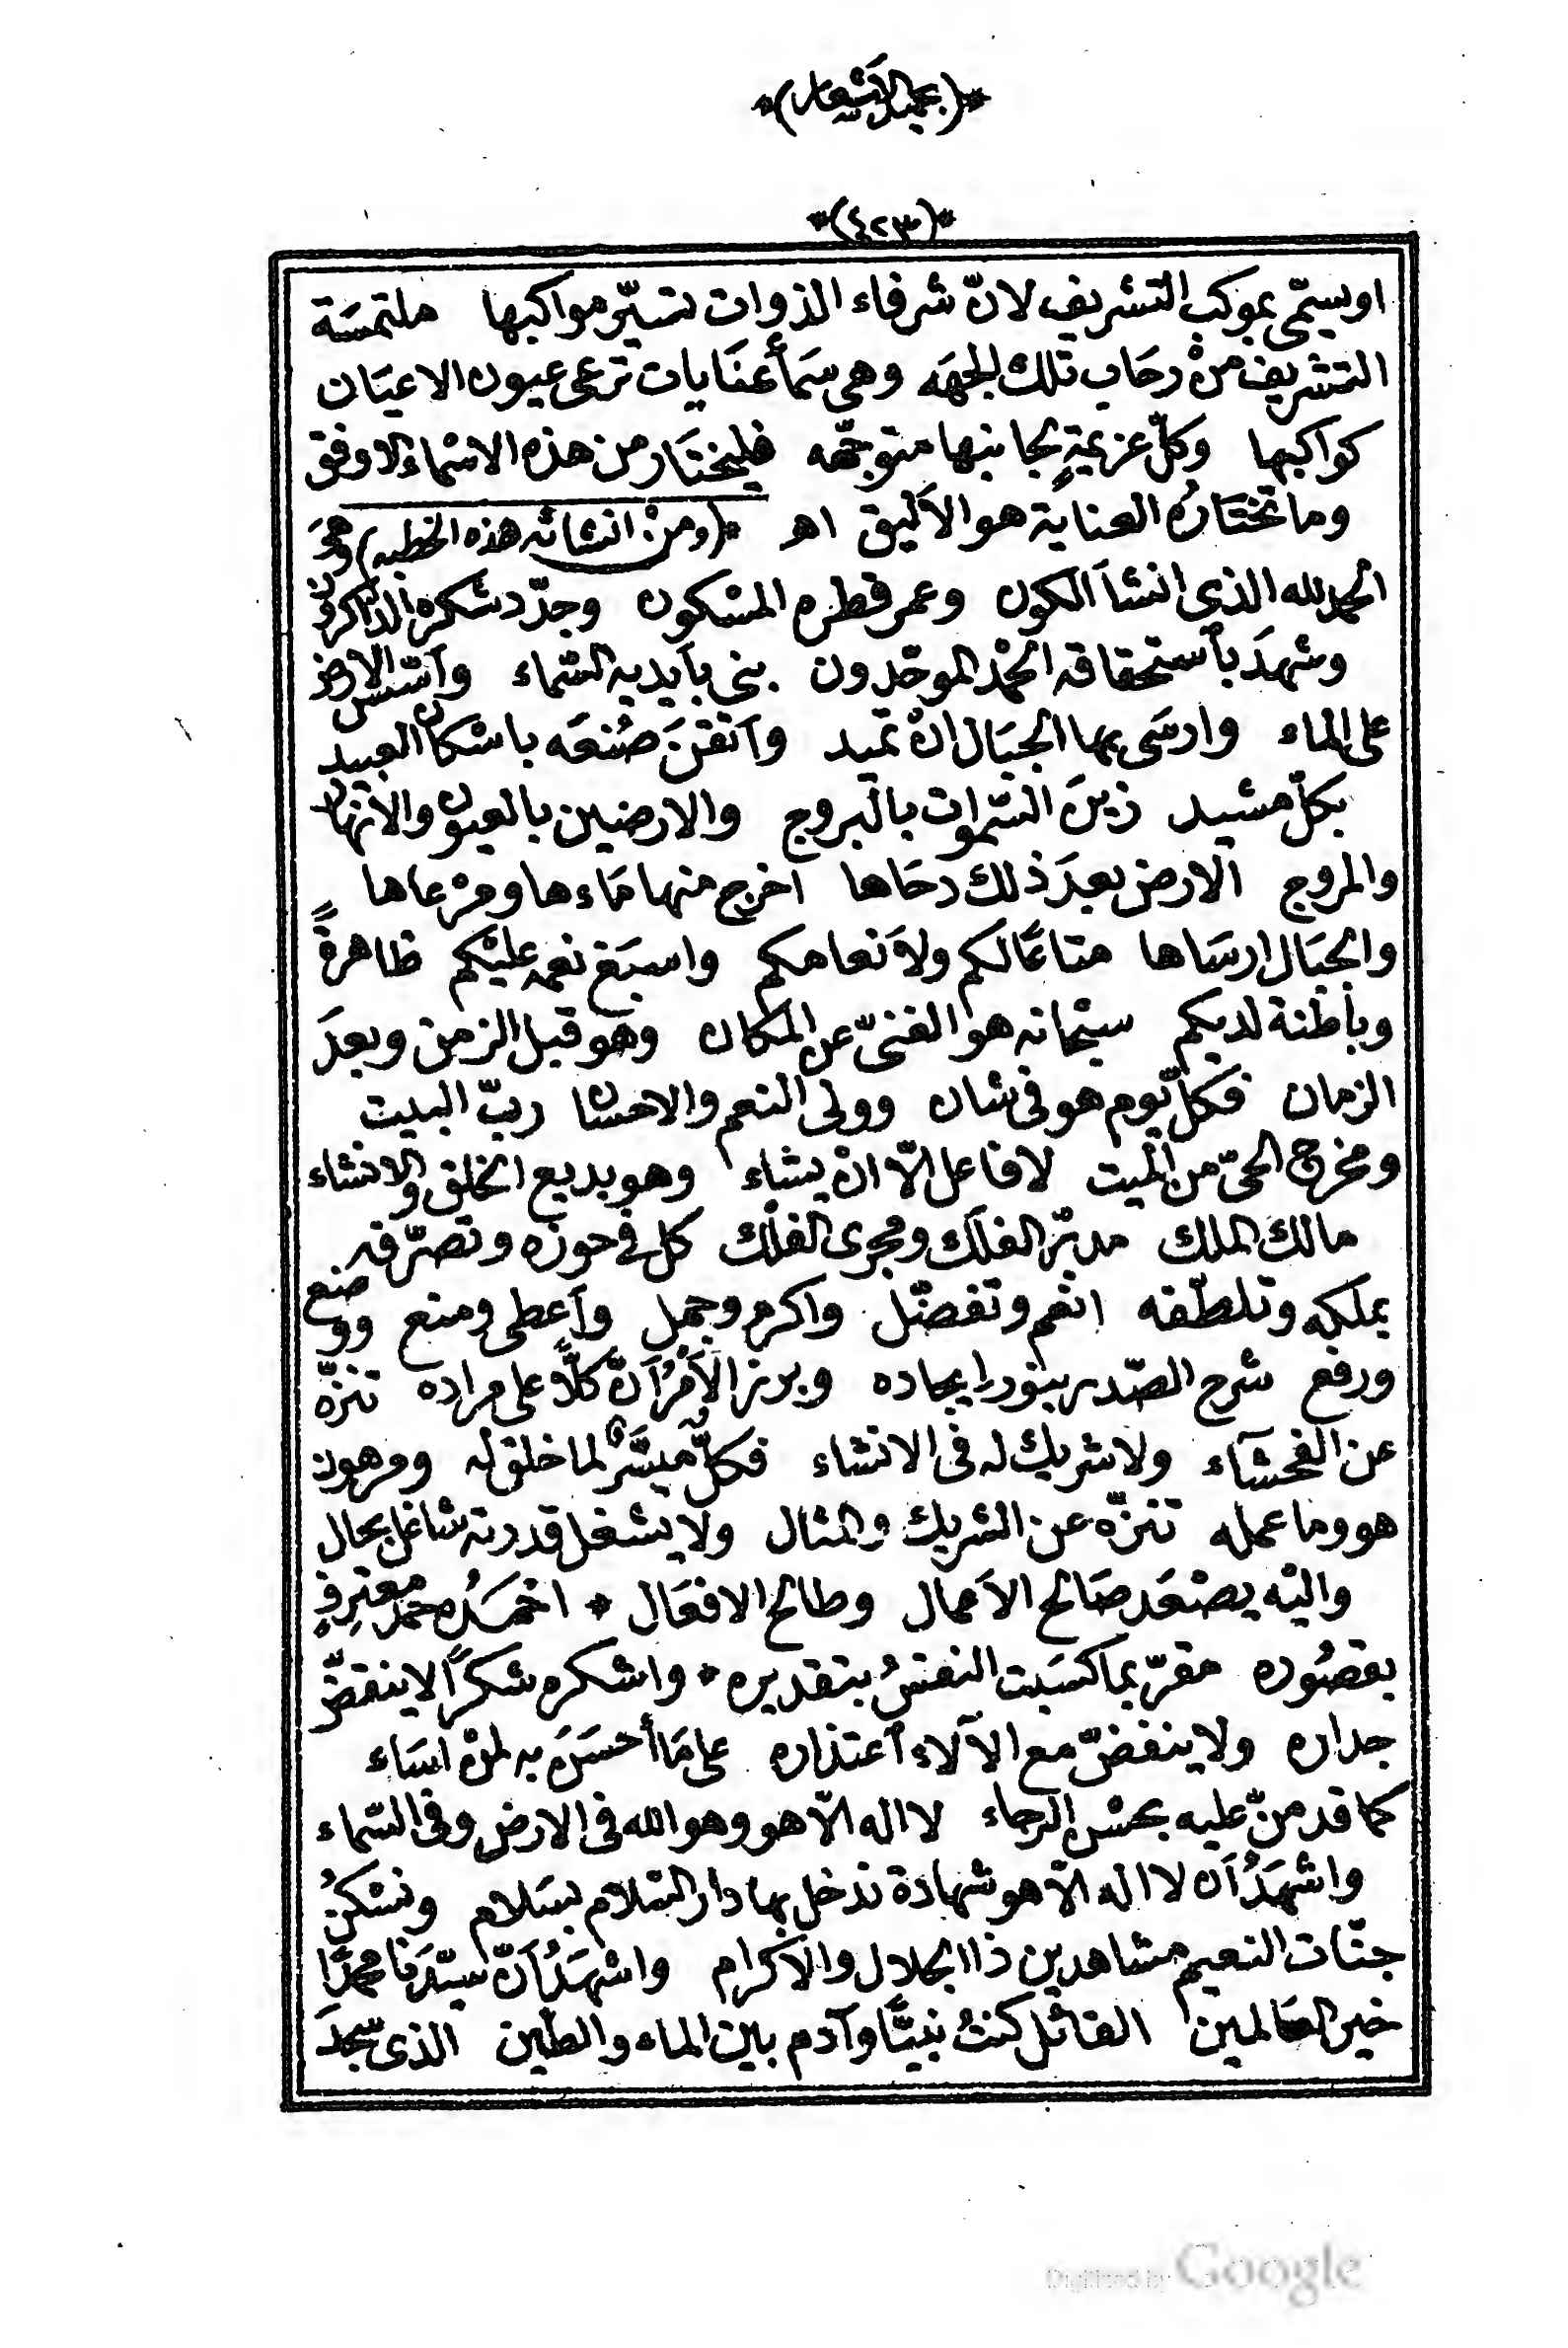 *(بجميل الأشعار)*
*(٤٢٣)*
او يسمّى بموكب التشريف لانّ شرفاء الذوات تسيّر مواكبها ملتمسَة
التشريف منْ رحَاب تلك الجهَه وهى سَمأ عنَايات ترعى عيون الاعيَان
كواكبها وكلّ عزيمةٍ بجانبها متوجّهه فليختَار من هذه الاسْماء الاوفق
وما تختَارُه العناية هو الاَليق اهـ *(ومنْ انشائه هذه الخطبه) وهىَ
الحمد لله الذى انشأ الكون وعمر قطره المسْكون وجدّد شكره الذّاكرون
وشهدَ بأستحقاقه الحمْد الموحّدون بنى بأيديه السّماء وأسّس الارض
على الماء وارسَى بها الجبَال انْ تميد وأتقنَ صُنعَه باسْكان العبيد
بكلّ مشيد زينَ السّموات بالبروج والارضين بالعيون والانهار
والمروج الارض بعدَ ذلك دحَاها أخرج منها مَاءها ومرْعاها
والجبَال ارسَاها متاعًا لكم ولاَنعامكم واسبَغ نعمه عليْكم ظاهرةً
وباطنة لديكم سبْحانه هو الغنىّ عن المكان وهو قبل الزمن وبعدَ
الزمان فكلّ يوم هو فى شان وولى النعم والاحسان ربّ البيت
ومخرج الحىّ من الميت لا فاعل الّا انْ يشاء وهو بديع الخلق والانشاء
مالك الملك مدبّر الفلَك ومجرى الفلْك كل فى حوزه وتصرّفه
بملكه وتلطّفه انعم وتفضّل واكرم وجمل وأعطى ومنع ووضع
ورفع شرح الصّدر بنور ايجاده وبرز الاَمْرُ اَنّ كلًّا على مراده تنزّه
عن الفحشآء ولا شريك له فى الانشاء فكلّ ميسَّر لما خلق له ومرهون
هو وما عمله تنزّه عن الشريك والمثال ولا يشغل قدرته شاغل بحال
واليْه يصْعَد صَالح الاَعمال وطالح الافعَال * احْمَدُه حمدَ معترِفٍ
بقصُوره مقرّ بما كسَبت النفسُ بتقديره * واشكره شكرًا لا ينقضّ
جداره ولا ينفضّ مع الآلاء أعتذاره على مَا أحْسَنَ به لمنْ اسَاء
كما قد منّ عليه بحسْن الرجاء لا اله الّا هو وهو الله فى الارض وفى السّماء
واشهَدُ اَن لا اله الّا هو شهادة ندخل بها دار السّلام بسَلام ونسْكنُ
جنّات النعيم مشاهدين ذا الجلال والاكرام واشهَدُ اَنّ سيّدَنا محمدًا
خير العَالمين القائل كنتُ نبيًّا وآدم بين الماء والطّين الذى سجدَ
Digitized by Google